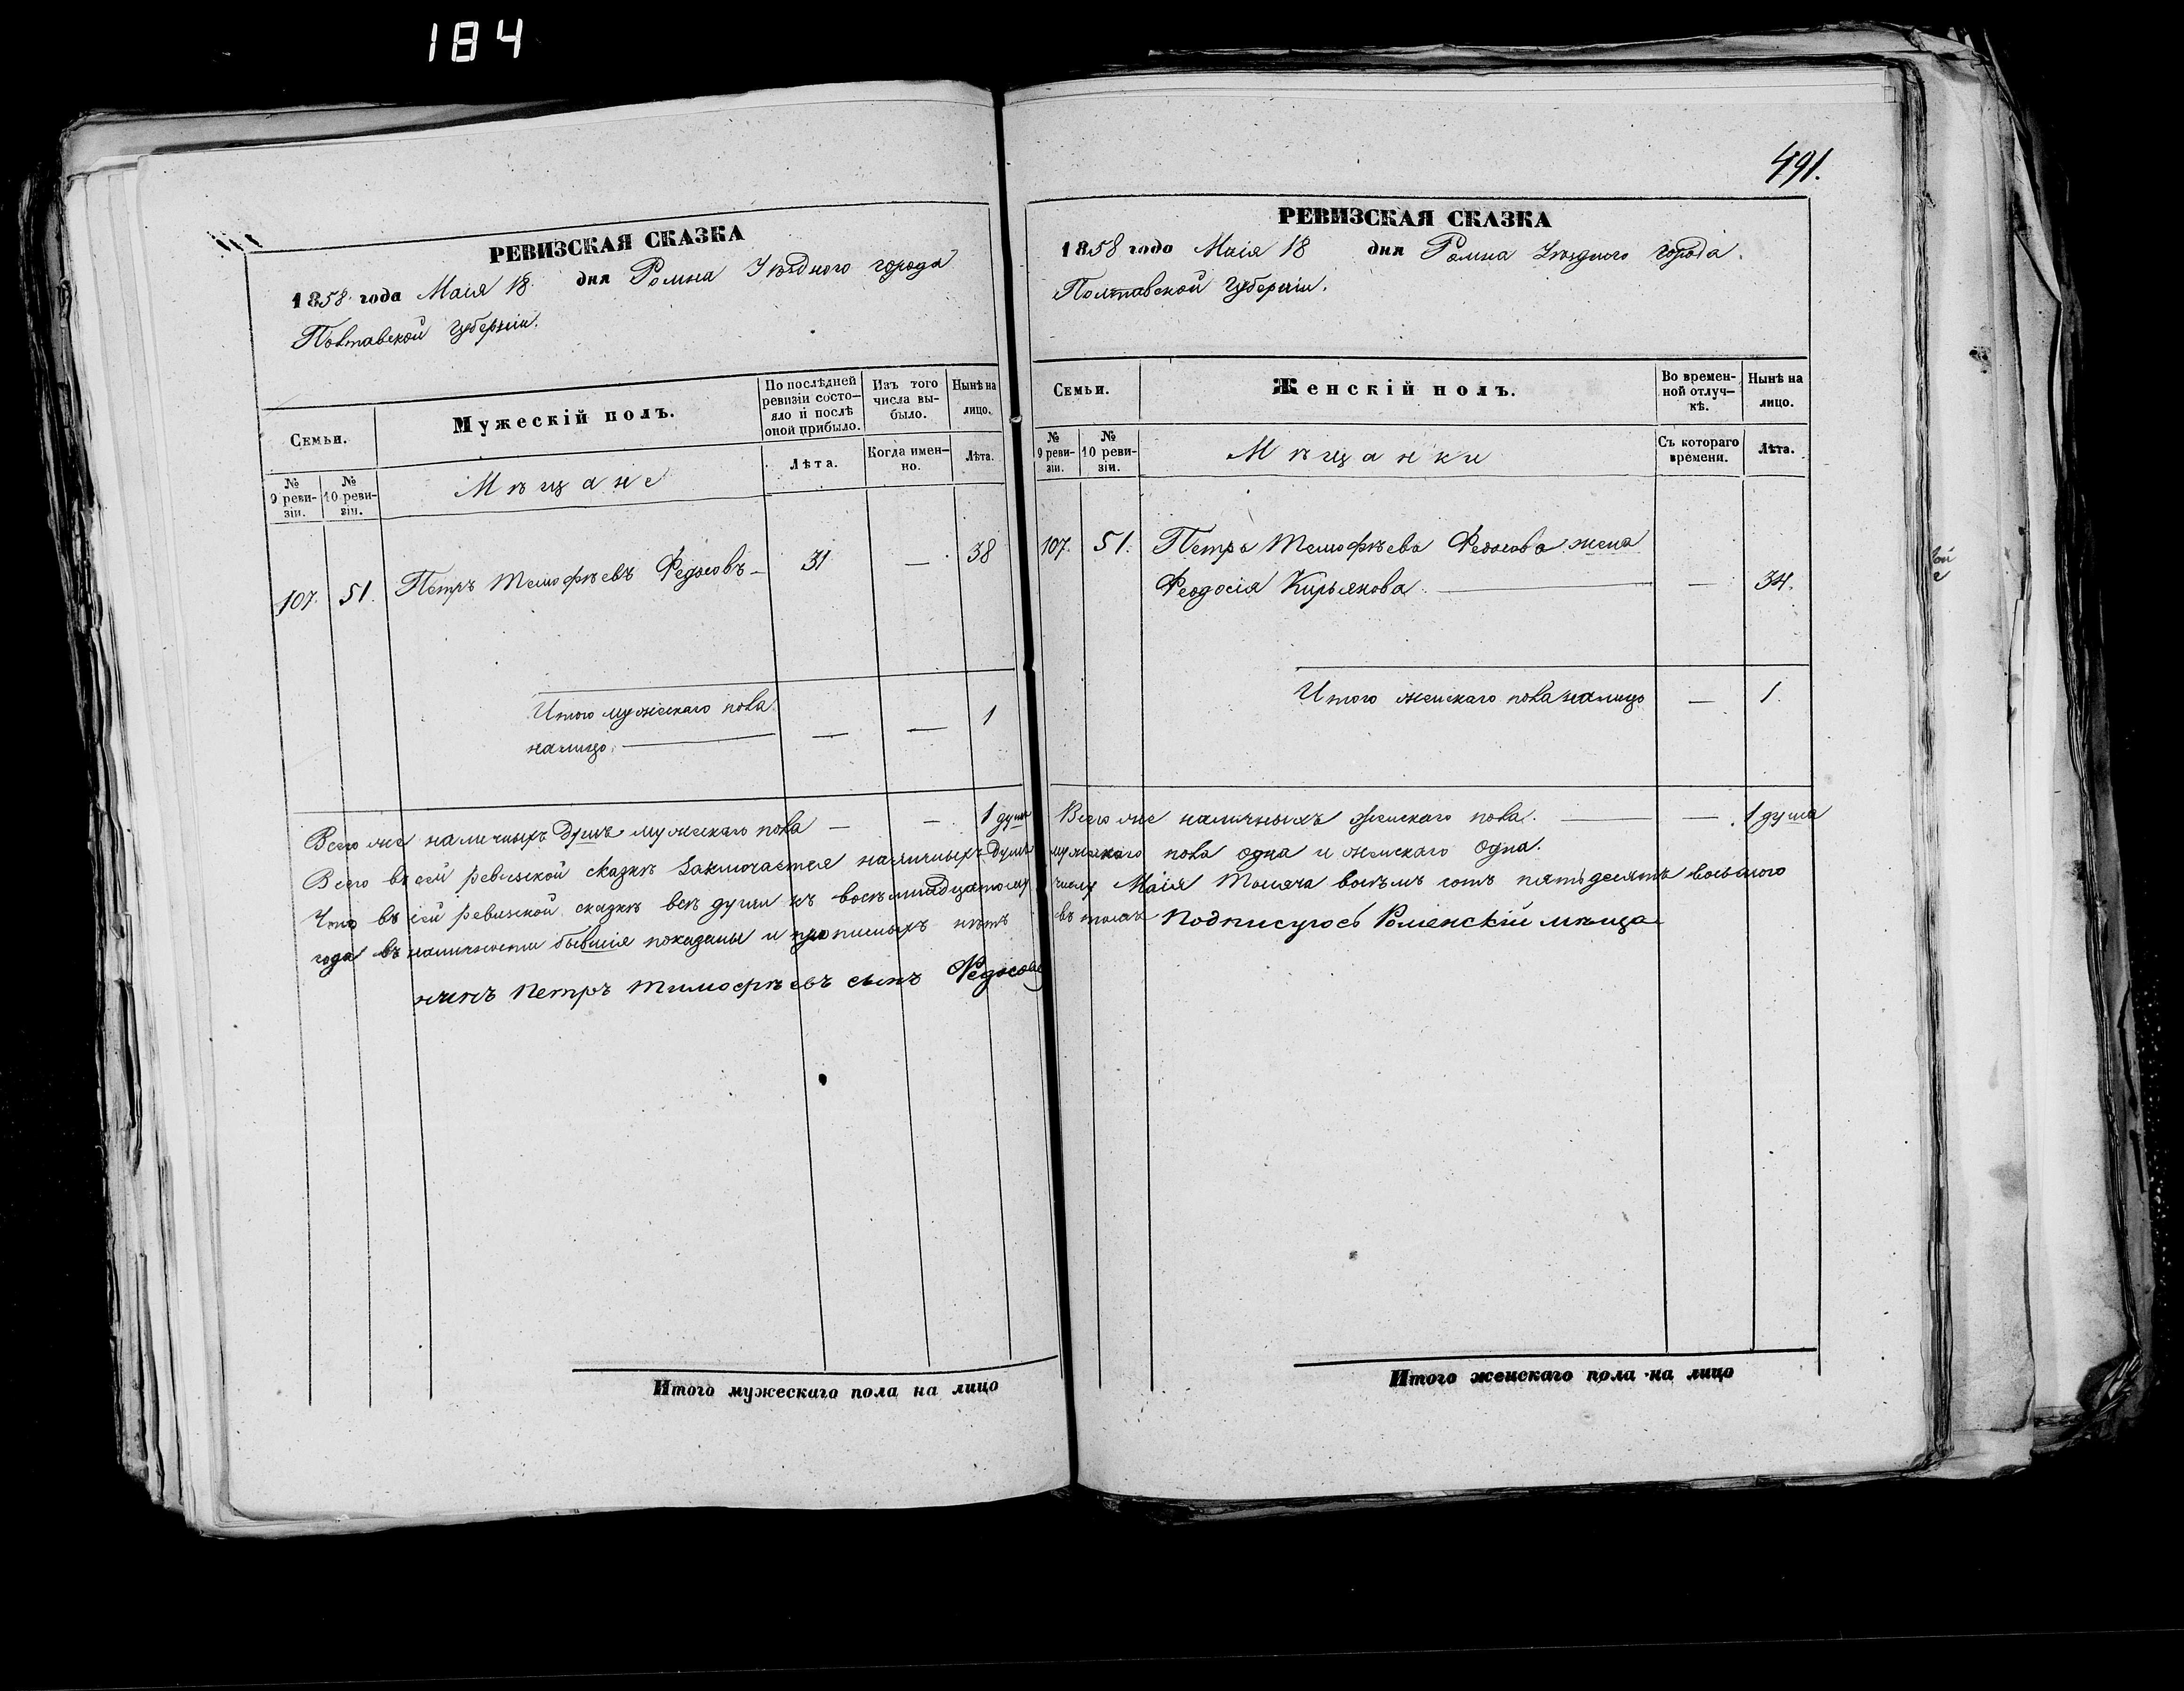 184
РЕВИЗСКАЯ СКАЗКА
1858 года Маія 18 дня Ромна Уѣзднаго города
Полтавской Губерніи.
Семьи.
Мужескій полъ.
По послѣдней ревизіи состо-яло и послѣ оной прибыло.
Изъ того числа вы-было.
Нынѣ на лицо.
№ 9 реви-зіи.
№ 10 реви-зіи.
Мѣщане
Лѣта.
Когда имен-но.
Лѣта.
107. 51. Петръ Тимофѣевъ Федосовъ 31 — 38
Итого мужескаго пола
налицо. — — 1
Всего же наличныхъ душъ мужескаго пола — — 1 душа
Всего въ сей ревизской сказкѣ заключается наличныхъ душъ
Что въ сей ревизской сказкѣ всѣ души къ восемнадцатому
года въ наличности бывшія показаны и прописныхъ нѣтъ
нинъ Петръ Тимофѣевъ сынъ Федосовъ
Итого мужескаго пола на лицо
491.
РЕВИЗСКАЯ СКАЗКА
1858 года Маія 18 дня Ромна Уѣзднаго города.
Полтавской Губерніи.
Семьи.
Женскій полъ.
Во времен-ной отлуч-кѣ.
Нынѣ на лицо.
№ 9 реви-зіи.
№ 10 реви-зіи.
Мѣщанки
Съ котораго времени.
Лѣта.
107. 51. Петра Тимофѣева Федосова жена
Феодосія Кирьякова — — 34.
Итого женскаго пола налицо — 1.
Всего же наличныхъ женскаго пола. — — 1 душа
мужескаго пола одна и женскаго одна.
числу Маія Тысяча восемь сотъ пятьдесятъ восьмого
въ томъ Подписуюсь Роменскій мѣща
Итого женскаго пола на лицо